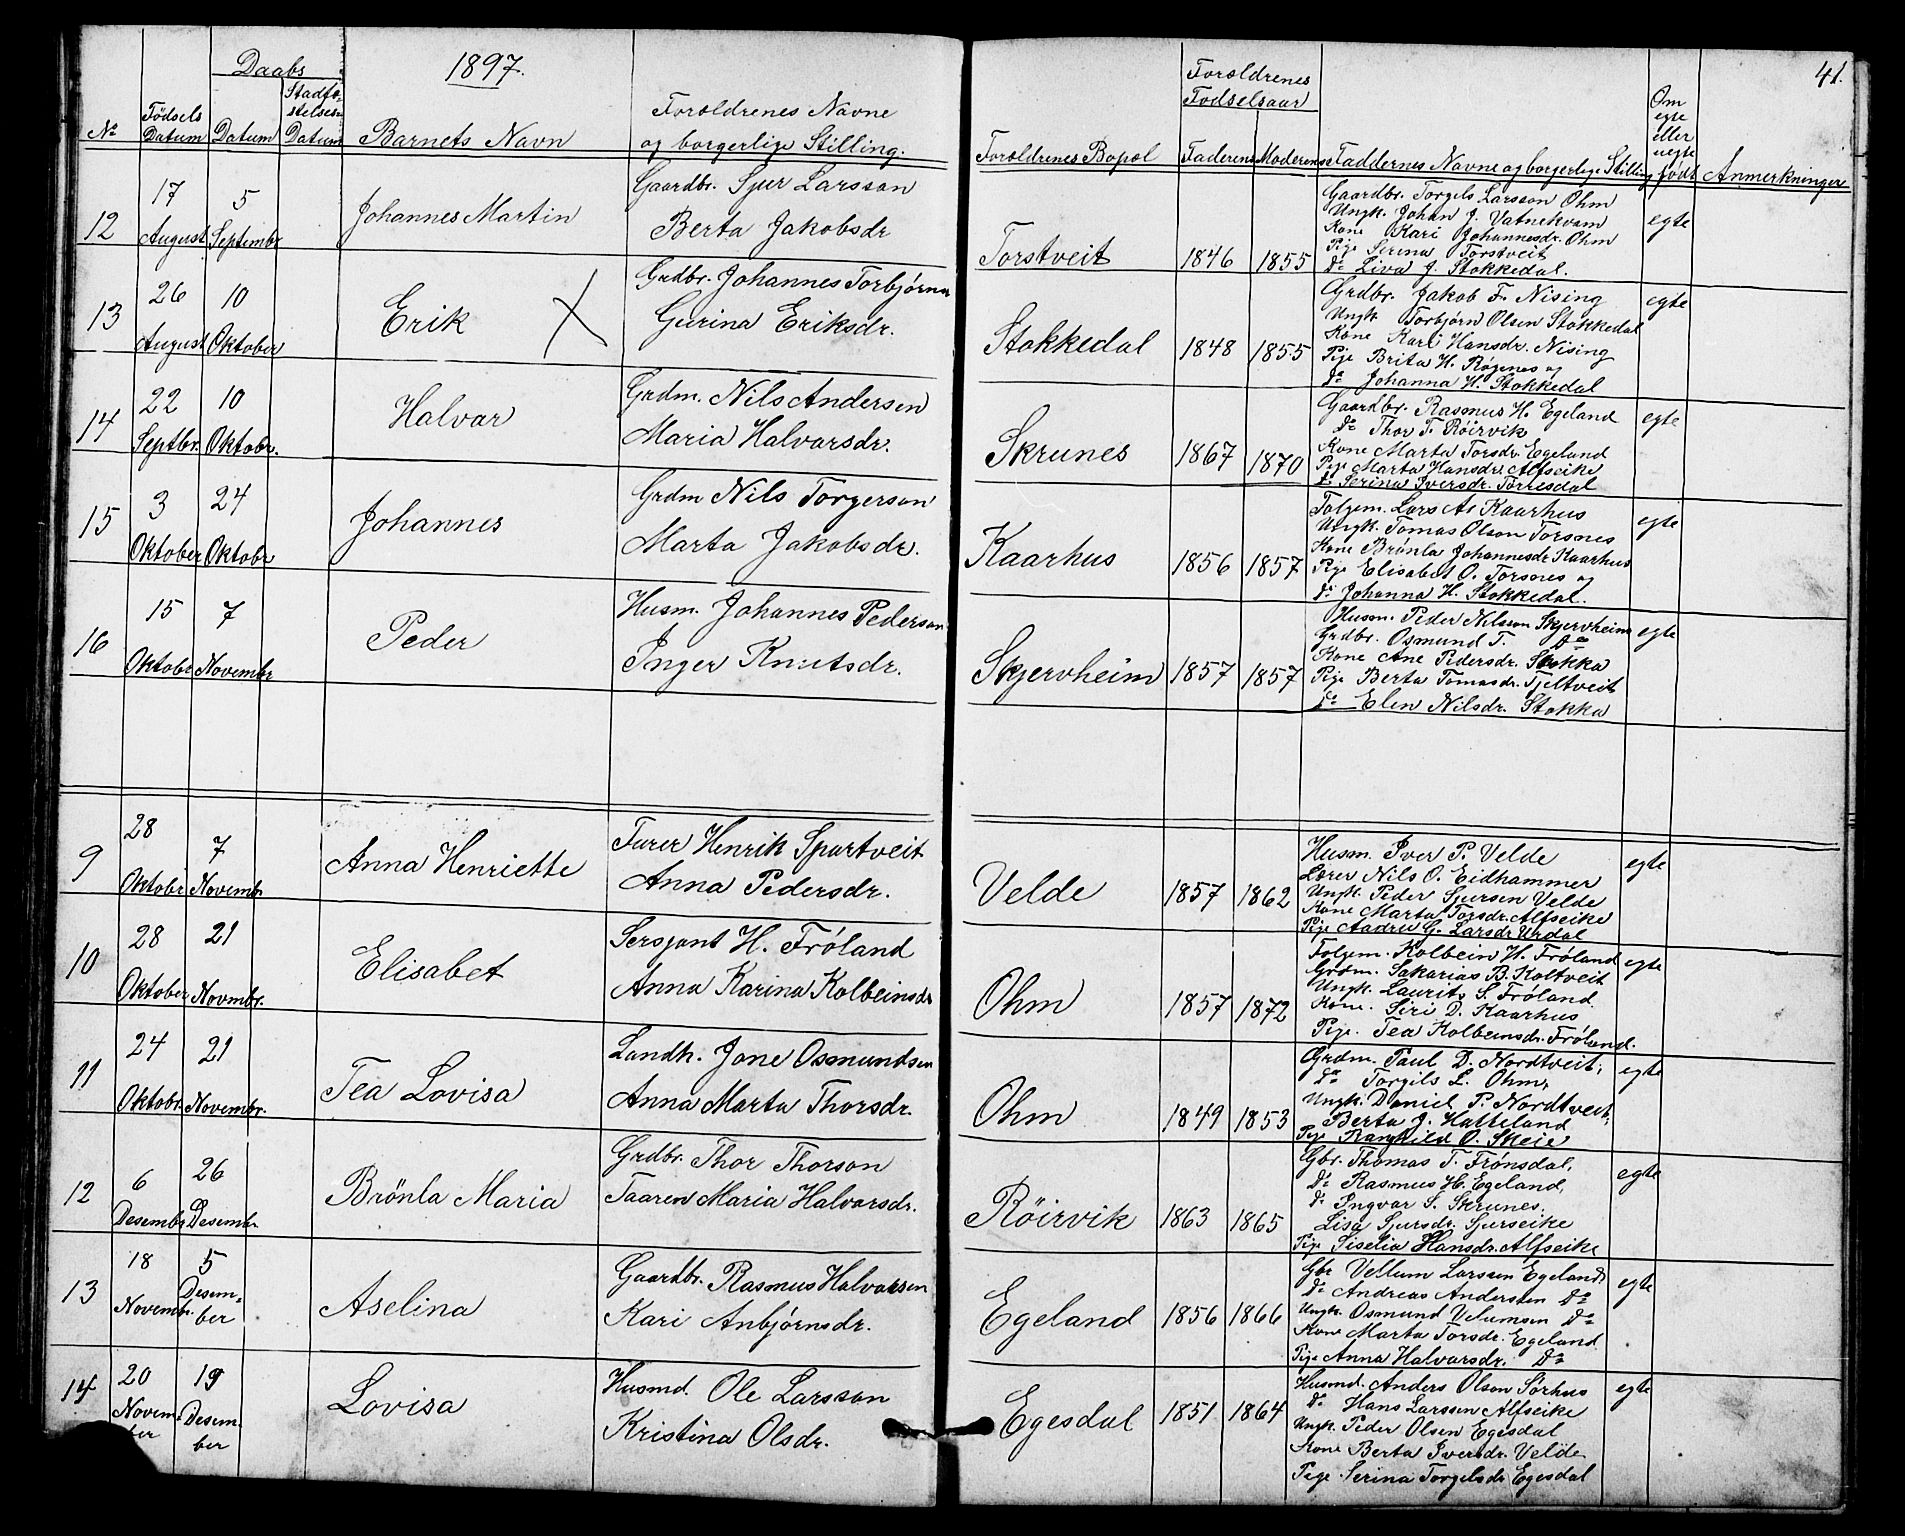 1897.
41.
Daabs
No
Fødsels
Datum
Datum
Stadfæ-
stelses-
Datum
Barnets Navn
Foreldrenes Navne
og borgerlige Stilling.
Foreldrenes Bopel
Foreldrenes
Fodselsaar
Faderens
Moderens
Faddernes Navne og borgerlige Stilling
Om
egte
eller
uegte
født
Anmerkninger
12
17
August
5
Septembr
Johannes Martin
Gaardbr. Sjur Larsson
Berta Jakobsdr
Torstveit
1846
1855
Gaardbr. Torgils Larsson Ohm
Ungk. Johan J. Vatnekvam
Kone Kari Johannesdr. Ohm
Pige Serina Torstveit
do Liva J. Stokkedal.
egte
13
26
August
10
Oktober
Erik
Grdbr. Johannes Torbjørns
Gurina Eriksdr.
Stokkedal
1848
1855
Grdbr. Jakob F. Nising
Ungk Torbjørn Olsen Stokkedal
Kone Kari Hansdr. Nising
Pije Brita H. Røgenes og
do Johanna H. Stokkedal
egte
14
22
Septbr.
10
Oktobr.
Halvar
Grdm. Nils Andersen
Maria Halvarsdr.
Skrunes
1867
1870
Gaardbr. Rasmus H. Egeland
do Thor T. Røirvik
Kone Marta Torsdr. Egeland
Pige Marta Hansdr. Alfseike
do Serina Iversdr. Torresdal
egte
15
3
Oktober
24
Oktobr
Johannes
Grdm Nils Torgerson
Marta Jakobsdr.
Kaarhus
1856
1857
Folgem. Lars A. Kaarhus
Ungk. Tomas Olson Torsnes
Kone Brønla Johannesdr Kaarhus
Pije Elisabet O. Torsnes og
do Johanna H. Stokkedal.
egte
16
15
Oktobr
7
Novembr
Peder
Husm. Johannes Pederson
Inger Knutsdr.
Skjervheim
1857
1857
Husm. Peder Nilsson Skjervheim
Grdbr. Osmund T. do
Kone Ane Pedersdr. Stokka
Pije Berta Tomasdr. Tjeltveit
do Elen Nilsdr. Stokka
egte
9
28
Oktobr
7
Novembr
Anna Henriette
Furer Henrik Spurtveit
Anna Pedersdr.
Velde
1857
1862
Husm. Iver P. Velde
Lærer Nils O. Eidhammer
Ungk. Peder Sjursen Velde
Kone Marta Torsdr. Alfseike
Pije G. Larsdr Urdal
egte
10
28
Oktober
21
Novmbr.
Elisabet
Sersjant H. Frøland
Anna Karina Kolbeinsdr
Ohm
1857
1872
Folgem. Kolbein H. Frøland
Grdm. Sakarias B. Koltveit
Ungk. Laurits S. Frøland.
Kone. Siri D. Kaarhus
Pije. Tea Kolbeinsdr. Frøland.
egte
11
24
Oktobr.
21
Novembr.
Tea Lovisa
Landh. Jone Osmundsen
Anna Marta Thorsdr.
Ohm
1849
1853
Grdm. Paul D. Nordtveit,
do Torgils L. Ohm,
Ungk. Daniel P. Nordtveit,
Berta J. Hatteland
Pije Ranghild O. Skeie
egte
12
6
Desembr
26
Desembr.
Brønla Maria
Grdbr. Thor Thorson
Taaren Maria Halvorsdr.
Røirvik
1863
1865
Gbr. Thomas T. Frønsdal,
do Rasmus H. Egeland,
do Ingvar S. Skrunes.
Lisa Sjursdr. Sjurseike
Pije Siselia Hansdr. Alfseike
egte
13
18
Novembr.
5
Desem-
ber
Aselina
Gaardbr. Rasmus Halvorsen
Kari Anbjørnsdr.
Egeland
1856
1866
Gbr Vellum Larsson Egeland,
do Andreas Andersen do
Ungk. Osmund Velumsen do
Kone Marta Torsdr. Egeland
Pije Anna Halvarsdr. do
egte
14
20
Novem-
ber
19
Desem-
ber
Lovisa
Husmd. Ole Larsson
Kristina Olsdr.
Egesdal
1851
1864
Husmd. Anders Olson Sørhus
do Hans Larssen Alfseike
Ungk. Peder Olsen Egesdal
Kone Berta Iversdr. Velde
Pige Serina Torgelsdr Egesdal
egte